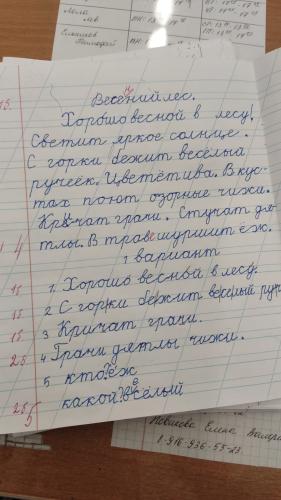 Лев
Тимофей
Весенний лес.
Хорошо весной в лесу!
Светит яркое солнце.
С горки бежит весёлый
ручеёк. Цветёт ива. В кус-
тах поют озорные чижи.
Кричат грачи. Стучат дя-
тлы. В траве шуршит ёж.
1 вариант
1. Хорошо весной в лесу.
2 С горки бежит весёлый руч
3 Кричат грачи.
4 Грачи дятлы чижи.
5 кто? ёж
какой? весёлый
1б
4
1б
1б
1б
2б
2б
5
Новикова Елена Валери
8-916-936-55-23